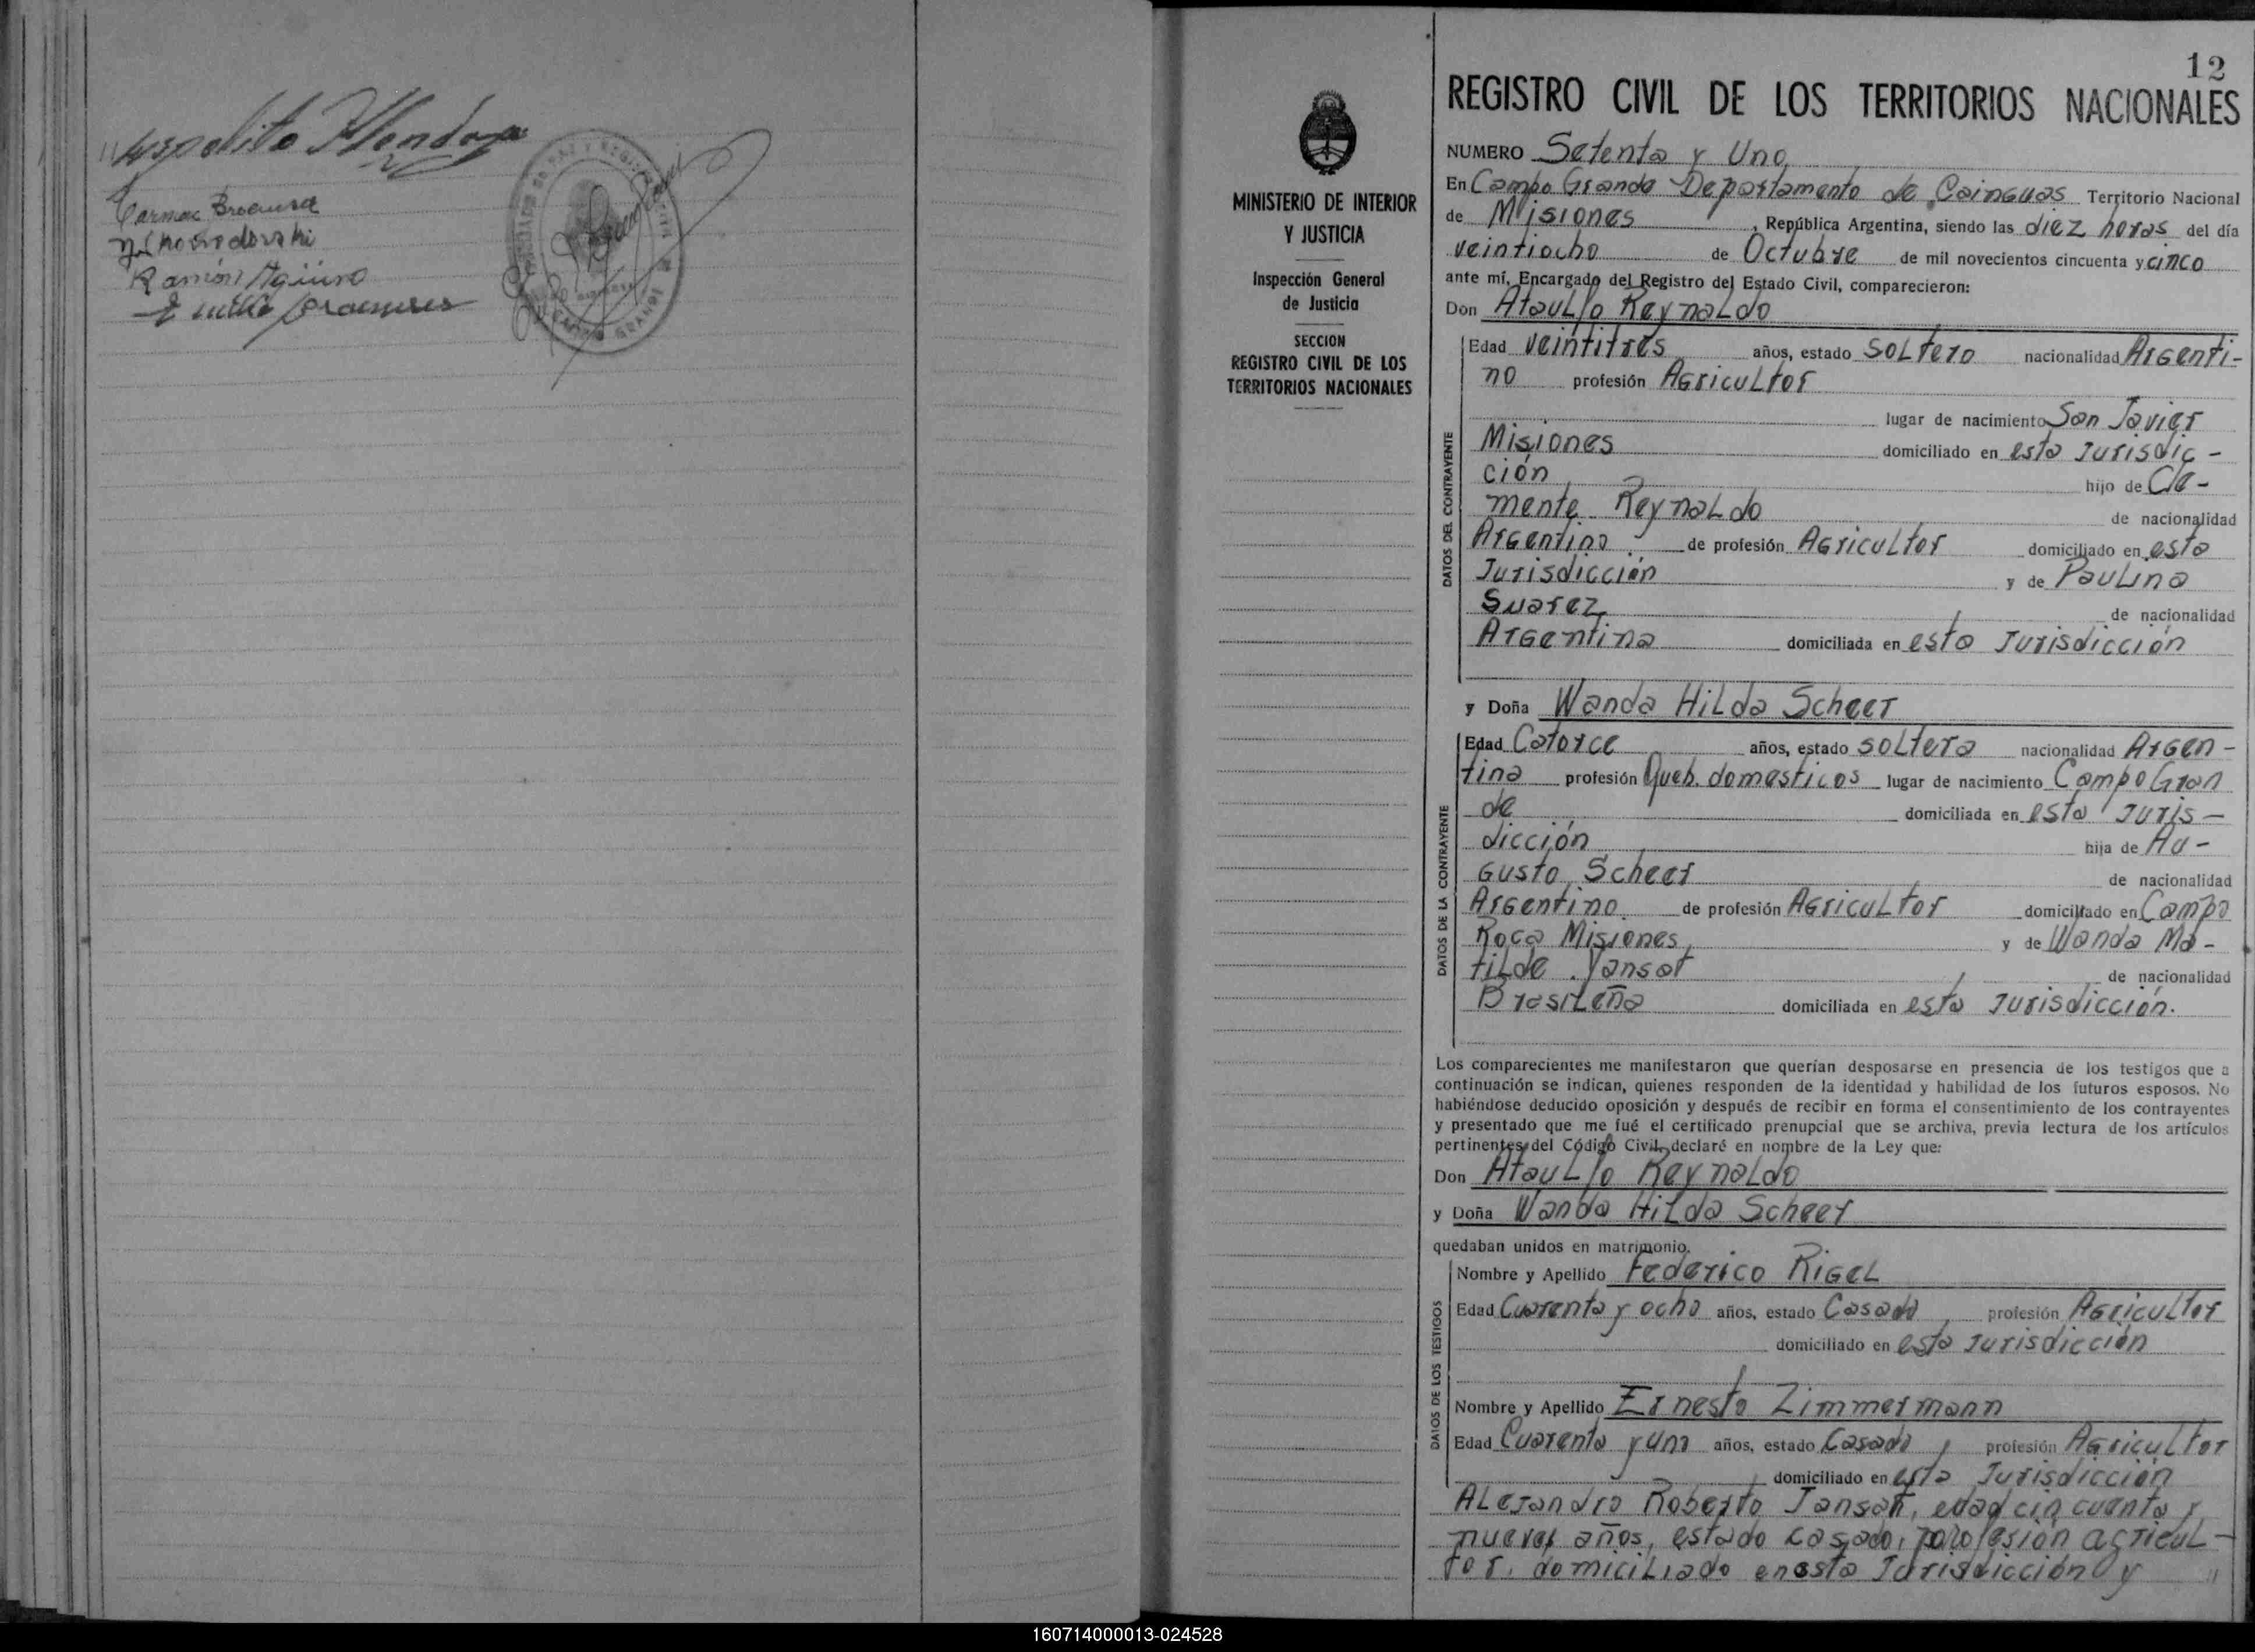 Hipolito Mendoza
Ramón Agüero
12
REGISTRO CIVIL DE LOS TERRITORIOS NACIONALES
MINISTERIO DE INTERIOR
Y JUSTICIA
Inspección General
de Justicia
SECCION
REGISTRO CIVIL DE LOS
TERRITORIOS NACIONALES
NUMERO Setenta y Uno
En Campo Grande Departamento de Cainguas Territorio Nacional
de Misiones, República Argentina, siendo las diez horas del día
veintiocho de Octubre de mil novecientos cincuenta y cinco
ante mí, Encargado del Registro del Estado Civil, comparecieron:
Don Ataulfo Reynaldo
DATOS DEL CONTRAYENTE
Edad veintitres años, estado soltero nacionalidad Argenti-
no profesión Agricultor
lugar de nacimiento San Javier
Misiones domiciliado en esta Jurisdic-
ción hijo de Cle-
mente Reynaldo de nacionalidad
Argentino de profesión Agricultor domiciliado en esta
Jurisdicción y de Paulina
Suarez de nacionalidad
Argentina domiciliada en esta Jurisdicción
y Doña Wanda Hilda Scheer
DATOS DE LA CONTRAYENTE
Edad Catorce años, estado soltera nacionalidad Argen-
tina profesión Queh. domesticos lugar de nacimiento Campo Gran
de domiciliada en esta Juris-
dicción hija de Au-
gusto Scheer de nacionalidad
Argentino de profesión Agricultor domiciliado en Campo
Roca Misiones, y de Wanda Ma-
tilde Yansat de nacionalidad
Brasileña domiciliada en esta Jurisdicción.
Los comparecientes me manifestaron que querían desposarse en presencia de los testigos que a
continuación se indican, quienes responden de la identidad y habilidad de los futuros esposos. No
habiéndose deducido oposición y después de recibir en forma el consentimiento de los contrayentes
y presentado que me fué el certificado prenupcial que se archiva, previa lectura de los artículos
pertinentes del Código Civil, declaré en nombre de la Ley que:
Don Ataulfo Reynaldo
y Doña Wanda Hilda Scheer
quedaban unidos en matrimonio.
DATOS DE LOS TESTIGOS
Nombre y Apellido Federico Rigel
Edad Cuarenta y ocho años, estado Casado profesión Agricultor
domiciliado en esta Jurisdicción
Nombre y Apellido Ernesto Zimmermann
Edad Cuarenta y uno años, estado Casado, profesión Agricultor
domiciliado en esta Jurisdicción
Alejandro Roberto Jansat, edad cincuenta y
nueve años, estado casado, profesión agricul-
tor, domiciliado en esta Jurisdicción y //
160714000013-024528